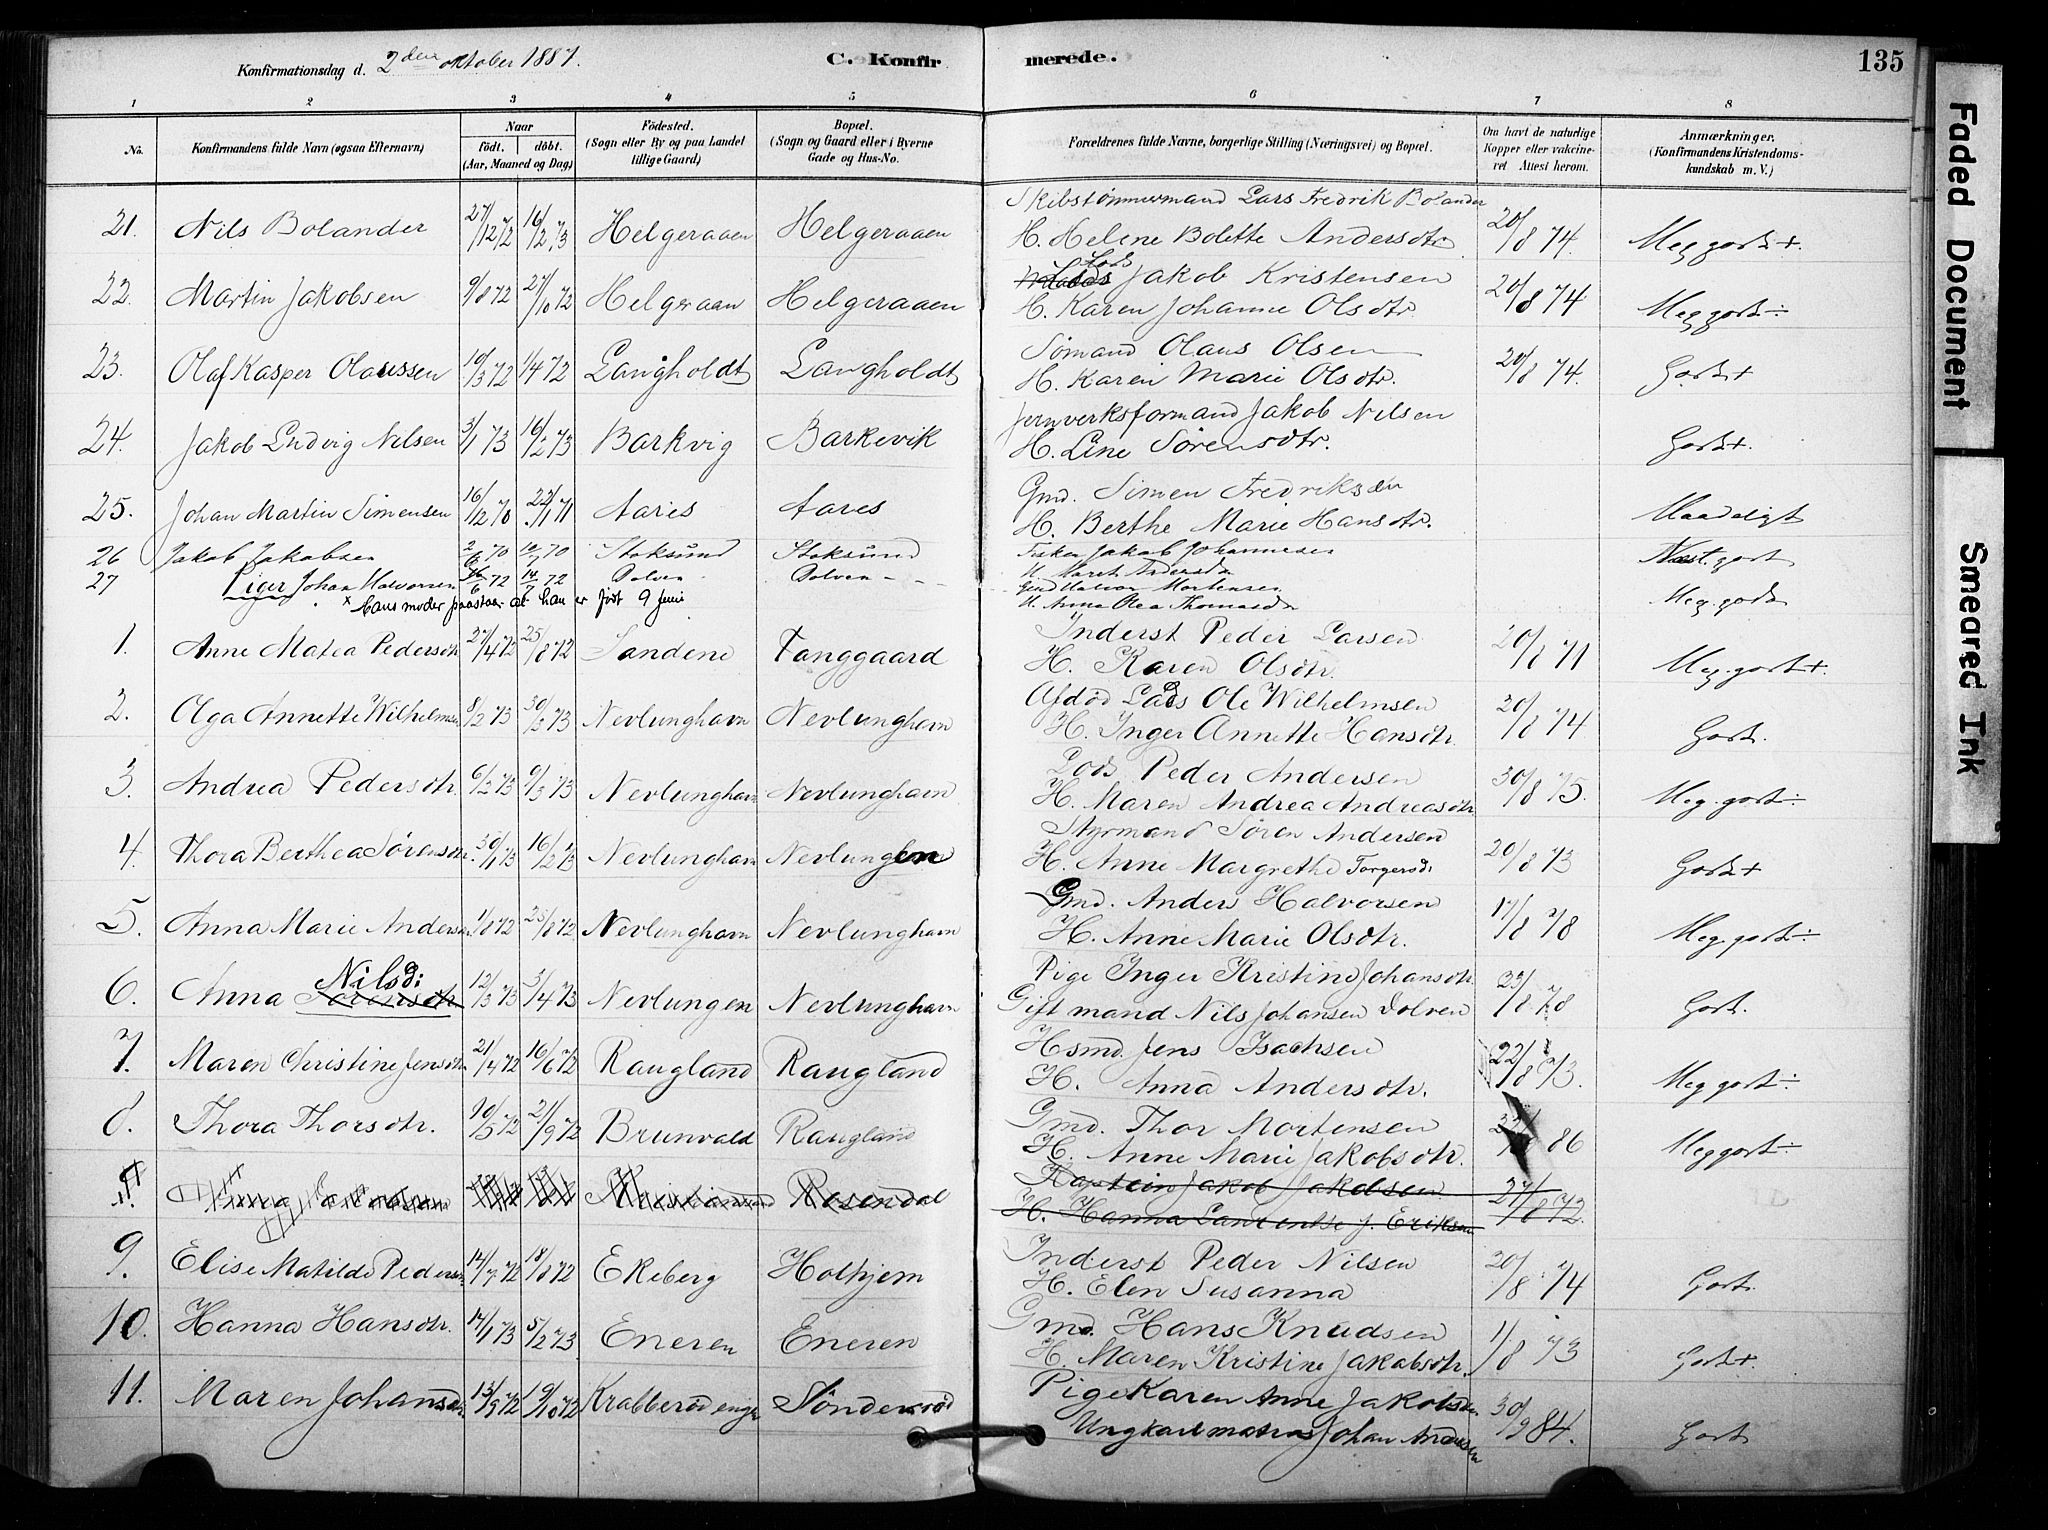 Konfirmationsdag d. 2den oktober 1887. C. Konfirmerede. 135
1 2 3 4 5 6 7 8
No. Konfirmandens fulde Navn (ogsaa Efternavn) Naar født. døbt. (Aar, Maaned og Dag) Fødested. (Sogn eller By og paa Landet tillige Gaard) Bopæl. (Sogn og Gaard eller i Byerne Gade og Hus-No. Forældrenes fulde Navne, borgerlige Stilling (Næringsvei) og Bopæl. Om havt de naturlige Kopper eller vakcineret Attest herom. Anmærkninger. (Konfirmandens Kristendomskundskab m. V.)
Skibstømmermand Lars Fredrik Bolander
21. Nils Bolander 27/12 72 16/2 73 Helgeraaen Helgeraaen H. Helene Bolette Andersdtr 20/8 74. Meg godt +.
Lods Jakob Kristensen
22. Martin Jakobsen 9/8 72 27/10 72 Helgeraaen Helgeraaen H. Karen Johanne Olsdtr 20/8 74 Meg godt ÷
Sømand Olaus Olsen
23. Olaf Kasper Olaussen 10/3 72 1/4 72 Langholdt Langholdt H. Karen Marie Olsdtr. 20/8 74. Godt +
Jernverksformand Jakob Nilsen
24. Jakob Ludvig Nilsen 3/1 73 16/2 73 Barkvig Barkevik H. Line Sørensdtr. Godt +.
Gmd. Simen Fredriksen
25. Johan Martin Simensen 16/12 70 22/1 71 Aaries Aares H. Berthe Marie Hansdtr. Maadeligt
26 Jakob Jakobsen 2/6 70 10/7 70 Stoksund Stoksund Fisker Jakob Johannesen Næst. godt
H. Maren Andersdtr
27 Johan Halvorsen 16/6 72 14/7 72 Dolven Dolven Gmd Halvor Mortensen Meg. godt
Piger x Hans moder paastaar at han er født 9 juni H. Anna Olea Thomasdtr
Inderst Peder Larsen
1. Anne Matea Pedersdtr 27/4 72 25/8 72 Sandene Fanggaard H. Karen Olsdtr. 20/8 71 Meg. godt +.
Afdød Lods Ole Wilhelmsen
2. Olga Annette Wilhelmsen 8/2 73 30/3 73 Nevlunghavn Nevlunghavn H. Inger Annette Hansdtr 20/8 74 Godt.
Lods Peder Andersen
3. Andrea Pedersdtr. 6/2 73 9/3 73 Nevlunghavn Nevlunghavn H. Maren Andrea Andreasdtr 30/8 75. Meg. godt ÷
Styrmand Søren Andersen
4. Thora Berthea Sørensdtr. 30/1 73 16/2 73 Nevlunghavn Nevlungen H. Anne Margrethe Torgersd: 20/8 73 Godt +
Gmd. Anders Halvorsen
5. Anna Marie Anders 1/8 72 25/8 72 Nevlunghavn Nevlunghavn H. Anne Marie Olsdtr. 17/8 78 Meg. godt ÷
Nilsd: Pige Inger Kristine Johansdtr
6. Anna Sørensdtr 12/3 73 3/4 73 Nevlungen Nevlunghavn Gift mand Nils Johansen Dolven 23/8 78 Godt.
Hsmd. Jens Isachsen
7. Maren Christine Jensdtr 21/4 72 16/6 72 Raugland Raugland H. Anna Andersdtr. 22/8 73. Meg godt ÷
Gmd. Thor Mortensen
8. Thora Thorsdtr. 10/5 72 21/9 72 Brunvald Raugland H. Anne Marie Jakobsdtr. 86 Meg godt ÷
Kaptein Jakob Jakobsen
9. Kristiansand Rosendal H. Hanna Laurentse f. Eriksen 27/8 72.
Inderst Peder Nilsen
9. Elise Matilde Peders 14/7 72 18/8 72 Ekeberg Holhjem H. Elen Susanna 20/8 74 Godt.
Gmd. Hans Knudsen
10. Hanna Hansdtr. 14/1 73 5/2 73 Eneren Eneren H. Maren Kristine Jakobsdtr. 1/8 73 Godt +.
Pige Karen Anne Jakobsdtr
11. Maren Johansdtr 13/9 72 19/10 72 Krabberødengen Søndersrød Ungkarl matros Johan Andersen 30/9 84. Godt
Faded Document
Smeared Ink